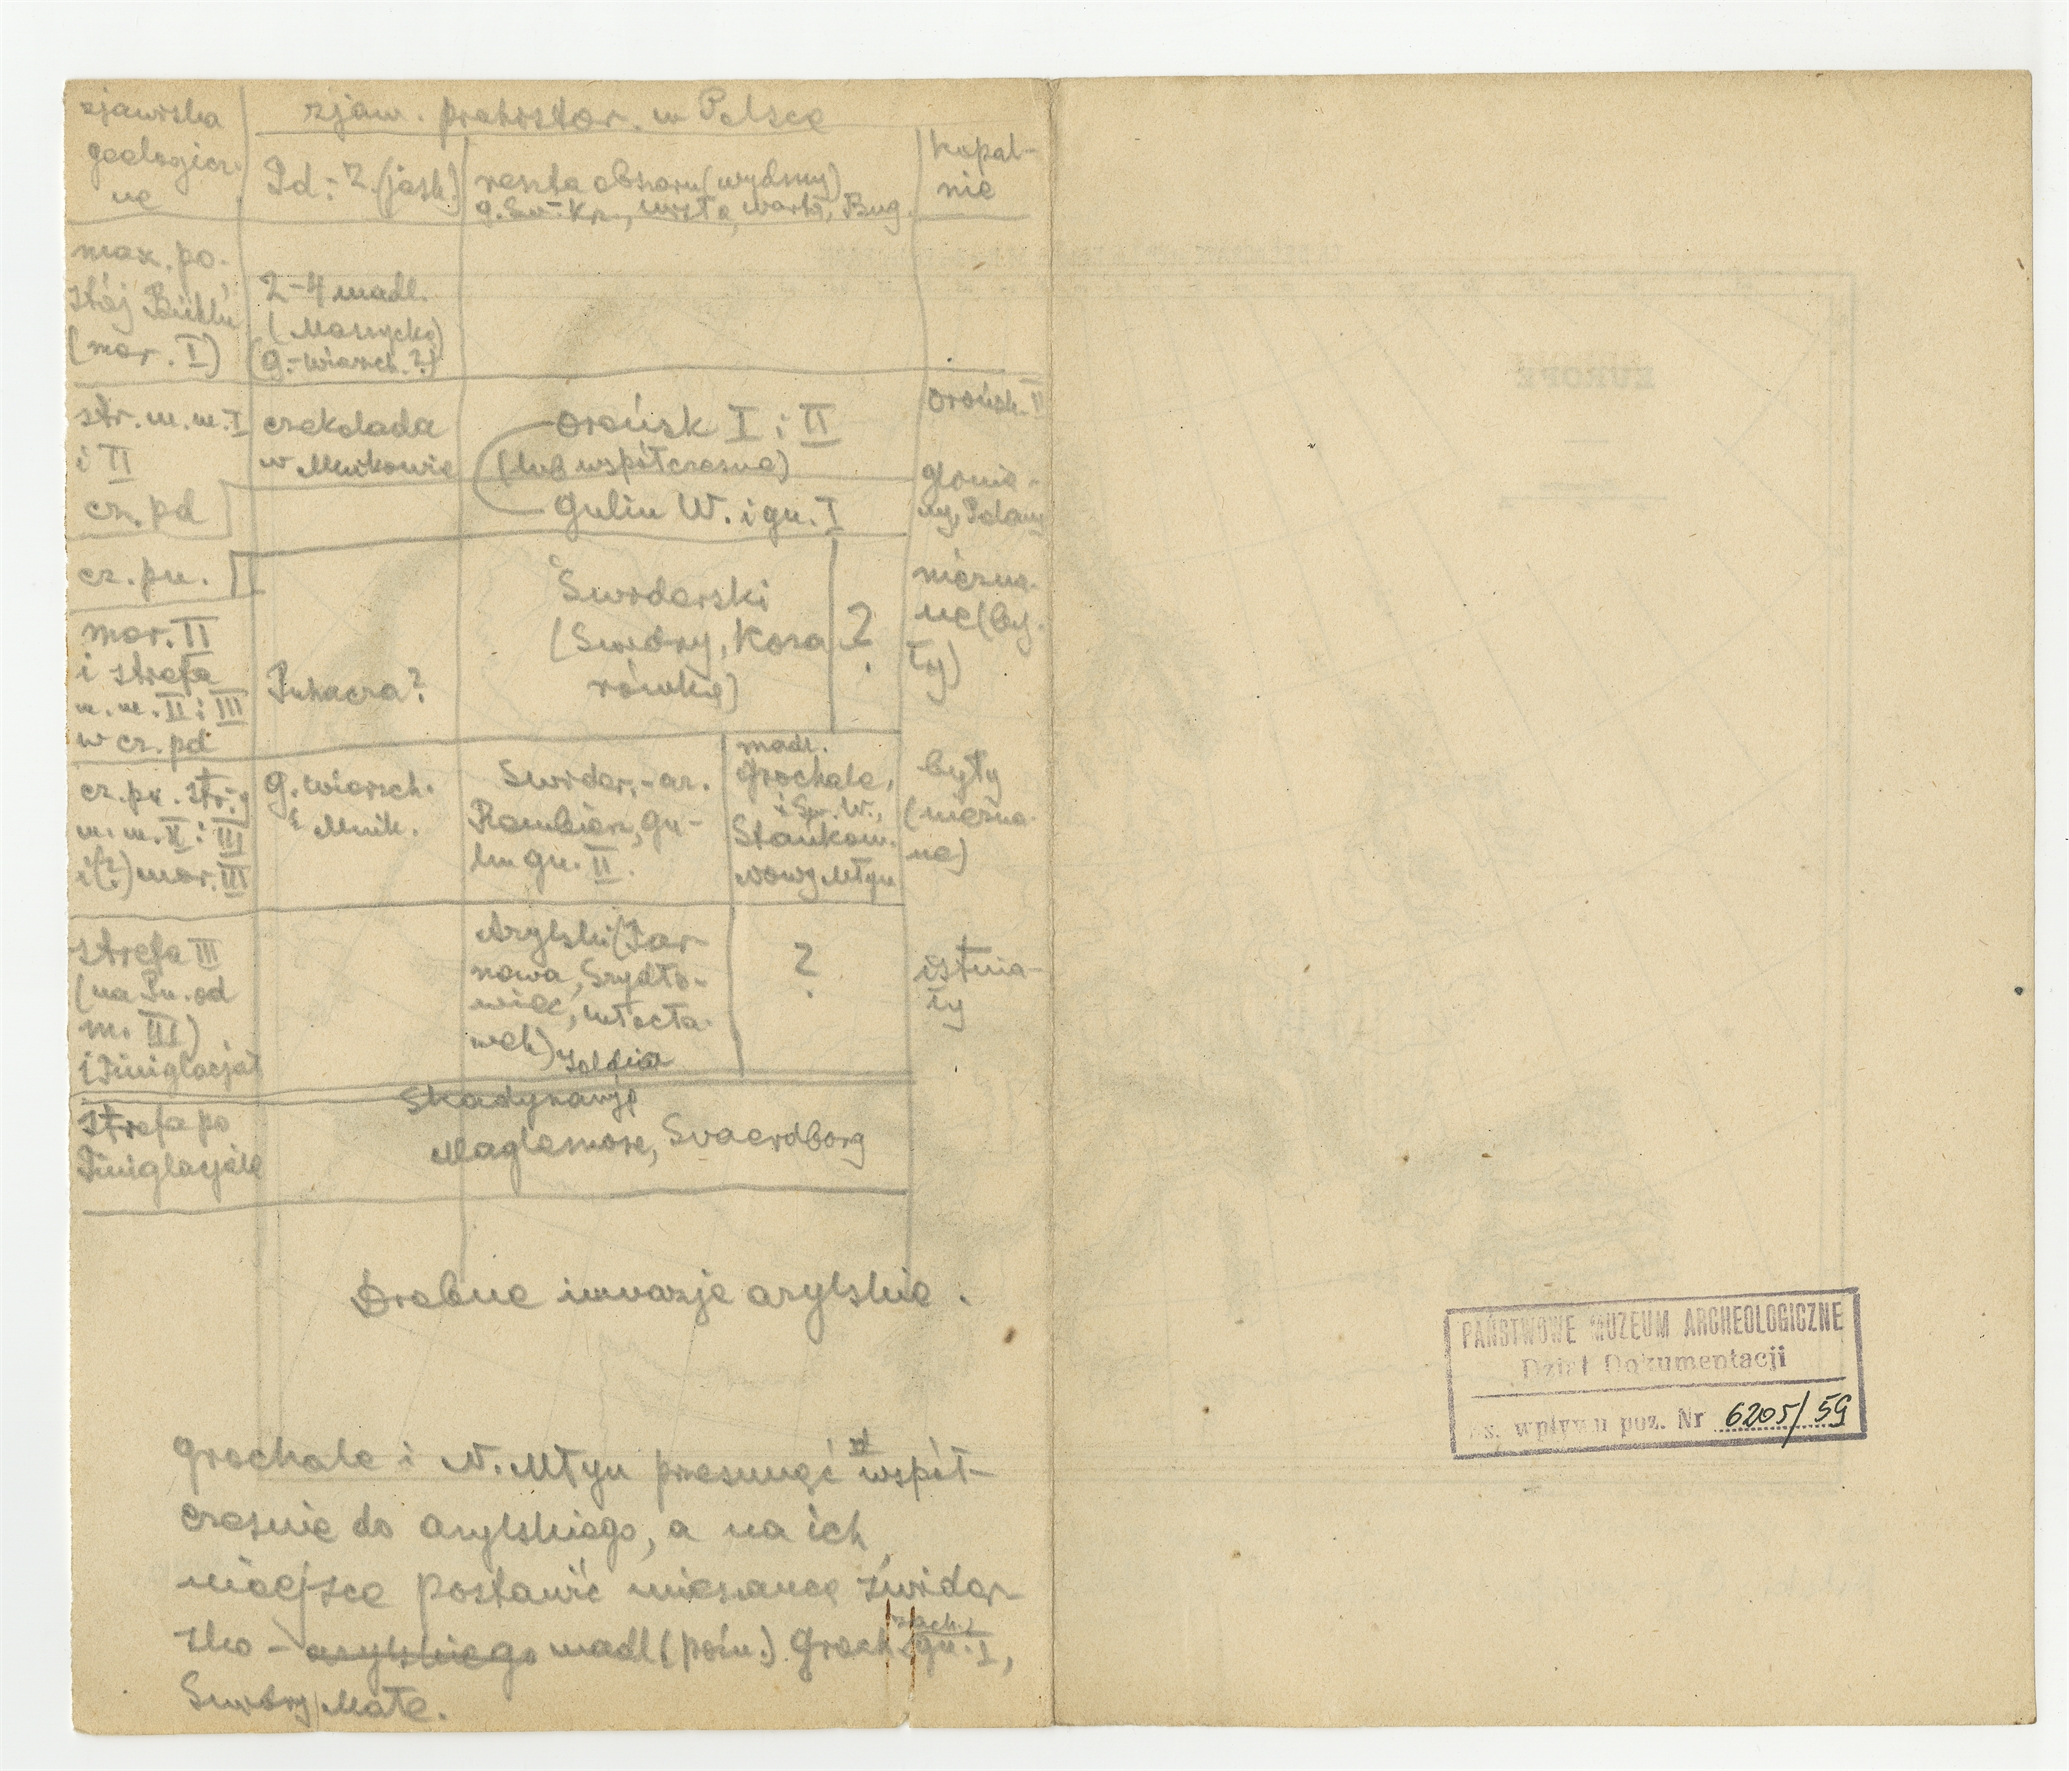 zjawiska
geologicz-
ne
zjaw. prehistor. w Polsce
Pd.-Z. (jask.)
reszta obszaru (wydmy)
g. Św.-Krz., Wisła, Warta, Bug.
kopal-
nie
max. po-
stój Bühlu
(mor. I)
2-4 madl.
(Maszycka)
(g.-wierzch.?)
str. m.m. I
i II
czekolada
w Mnikowie
Orońsk I i II
(lub współczesne)
Orońsk II
cz. pd
Gulin W. i gu. I
glonia-
ny, Polany
cz. pn.
Świderski
(Świdry, Koza
rówka)
?
niezna-
ne (by-
ły)
mor. II
i strefa
m.m. II i III
w cz. pd
Puhacza?
cz. pn. str.
m.m. II i III
i (?) mor. III
g. wierzch.
Mnik.
Świder.-az.
Rembierz, Gu-
lin gu. II.
madl.
Grochale,
i Św. W.,
Stankow.
Nowy Młyn
były
(niezna-
ne)
strefa III
(na Pn. od
m. III)
i Finiglacjał
Azylski (Tar-
nowa, Szydło-
wiec, Włocła-
wek) Yoldia
?
istnia-
ły
strefa po
Finiglacjale
Skadynawja
Maglemose, Svaerdborg
Drobne inwazje azylskie.
Grochale i N. Młyn przesunąć współ-
cześnie do azylskiego, a na ich
miejsce postawić mieszance świder-
sko - azylskiego madl (późn.) Groch. gu. I,
zach.
Świdry Małe.
PAŃSTWOWE MUZEUM ARCHEOLOGICZNE
Dział Dokumentacji
Ks. wpływu poz. Nr 6205/59
EUROPE